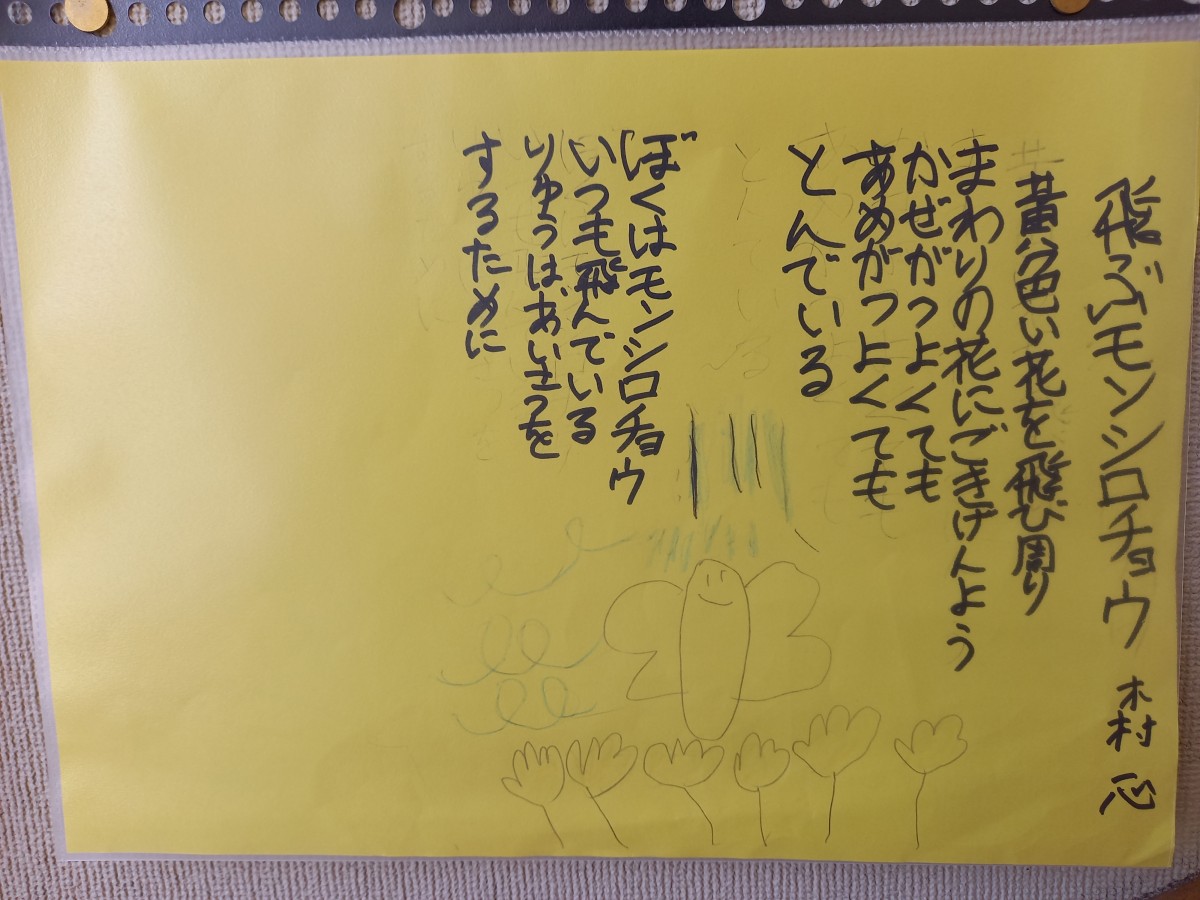 飛ぶモンシロチョウ 森村 心
黄色い花を飛び周り
まわりの花にごきげんよう
かぜがつよくても
あめがつよくても
とんでいる
ぼくはモンシロチョウ
いつも飛んでいる
りゆうはあいさつを
するために